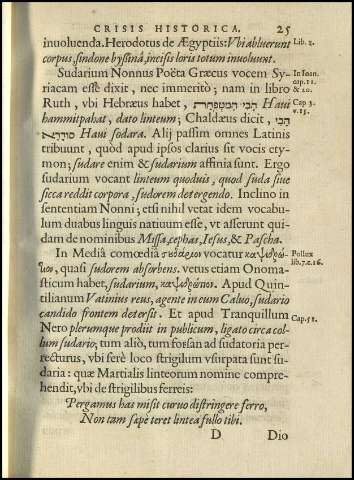 CRISIS HISTORICA. 25
inuoluenda. Herodotus de Ægyptiis: Vbi abluerunt
Lib. 2.
corpus, sindone byssinâ, incisis loris totum inuoluunt.
Sudarium Nonnus Poëta Græcus vocem Sy-
In Ioan.
riacam esse dixit, nec immeritò; nam in libro
cap. 11.
& 20.
Ruth, vbi Hebræus habet, הבי המטפחת Haui
Cap 3.
hammitpahat, dato linteum; Chaldæus dicit, הבי,
v. 15.
סודרא Haui sodara. Alij passim omnes Latinis
tribuunt, quòd apud ipsos clarius sit vocis ety-
mon; sudare enim & sudarium affinia sunt. Ergo
sudarium vocant linteum quoduis, quod suda siue
sicca reddit corpora, sudorem detergendo. Inclino in
sententiam Nonni; etsi nihil vetat idem vocabu-
lum duabus linguis natiuum esse, vt asserunt qui-
dam de nominibus Missa, cephas, Iesus, & Pascha.
In Mediâ comœdiâ vocatur
Pollux
lib. 7. c. 16.
quasi sudorem absorbens. vetus etiam Onoma-
sticum habet, sudarium, Apud Quin-
tilianum Vatinius reus, agente in eum Caluo, sudario
candido frontem detersit. Et apud Tranquillum
Nero plerumque prodiit in publicum, ligato circa col-
Cap. 51.
lum sudario; tum aliò, tum forsan ad sudatoria per-
recturus, vbi ferè loco strigilum vsurpata sunt su-
daria: quæ Martialis linteorum nomine compre-
hendit, vbi de strigilibus ferreis:
Pergamus has misit curuo distringere ferro,
Non tam sæpe teret lintea fullo tibi.
D Dio